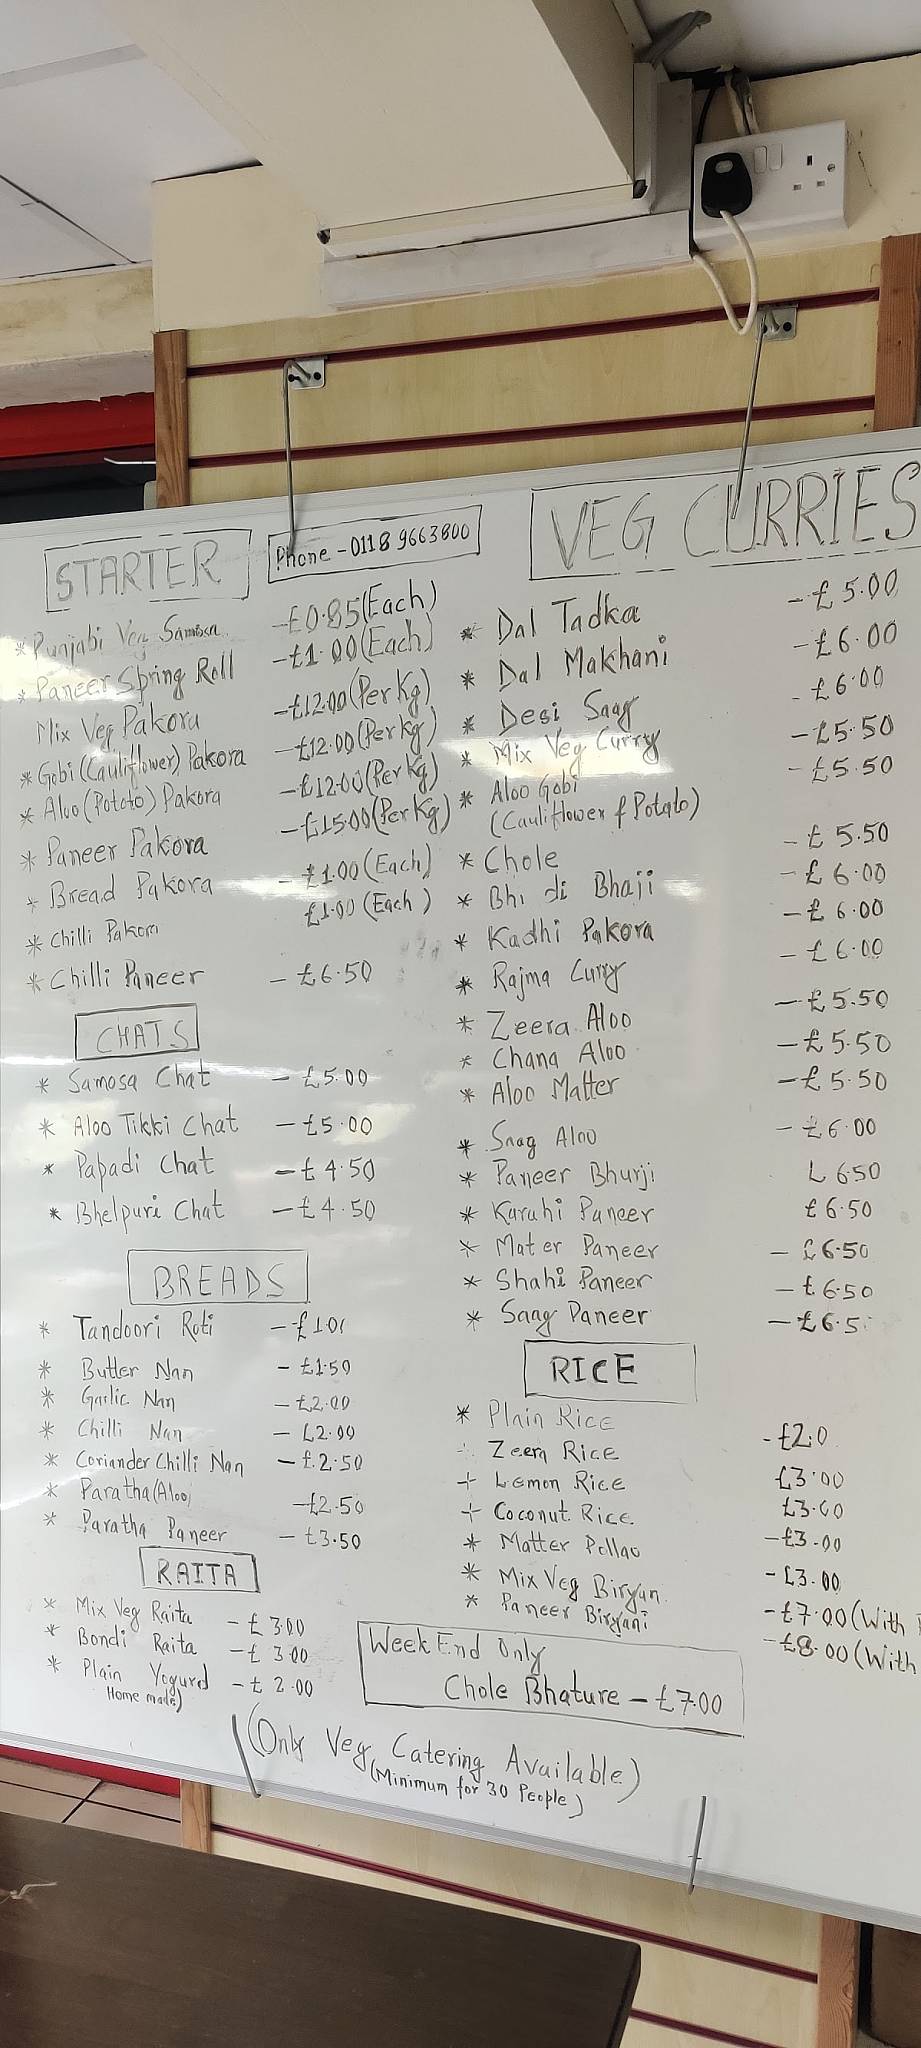 STARTER
Phone - 0118 9663800
* Punjabi Veg Samosa - £0.85 (Each)
* Paneer Spring Roll - £1.00 (Each)
Mix Veg Pakora - £12.00 (Per Kg)
* Gobi (Cauliflower) Pakora - £12.00 (Per Kg)
* Aloo (Potato) Pakora - £12.00 (Per Kg)
* Paneer Pakora - £15.00 (Per Kg)
* Bread Pakora - £1.00 (Each)
* Chilli Pakora £1.00 (Each)
* Chilli Paneer - £6.50
CHATS
* Samosa Chat - £5.00
* Aloo Tikki Chat - £5.00
* Papadi Chat - £4.50
* Bhelpuri Chat - £4.50
BREADS
* Tandoori Roti - £1.0
* Butter Nan - £1.50
* Garlic Nan - £2.00
* Chilli Nan - £2.00
* Coriander Chilli Nan - £2.50
* Paratha (Aloo) - £2.50
* Paratha Paneer - £3.50
RAITA
* Mix Veg Raita - £3.00
* Bondi Raita - £3.00
* Plain Yogurd - £2.00
Home made)
VEG CURRIES
* Dal Tadka - £5.00
* Dal Makhani - £6.00
* Desi Saag - £6.00
* Mix Veg Curry - £5.50
* Aloo Gobi - £5.50
(Cauliflower & Potato)
* Chole - £5.50
* Bhi di Bhaji - £6.00
* Kadhi Pakora - £6.00
* Rajma Curry - £6.00
* Zeera Aloo - £5.50
* Chana Aloo - £5.50
* Aloo Matter - £5.50
* Saag Aloo - £6.00
* Paneer Bhurji £6.50
* Karahi Paneer £6.50
* Mater Paneer - £6.50
* Shahi Paneer - £6.50
* Saag Paneer - £6.5
RICE
* Plain Rice - £2.0
Zeera Rice £3.00
+ Lemon Rice £3.00
+ Coconut Rice - £3.00
* Matter Pollao - £3.00
* Mix Veg Biryan - £7.00 (With
* Paneer Biryani - £8.00 (With
Week End Only
Chole Bhature - £7.00
(Only Veg Catering Available)
(Minimum for 30 People)